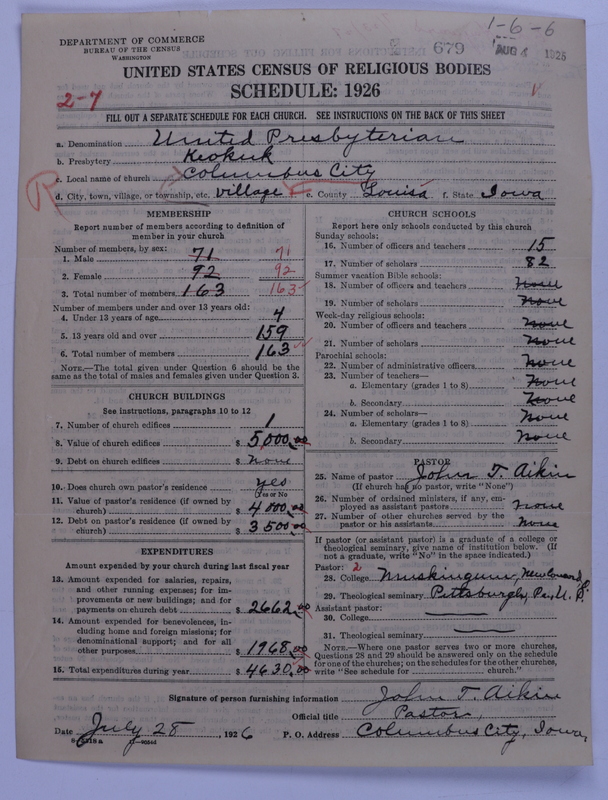 1-6-6
DEPARTMENT OF COMMERCE
BUREAU OF THE CENSUS
WASHINGTON
679
AUG 4 1926
UNITED STATES CENSUS OF RELIGIOUS BODIES
SCHEDULE: 1926
2-7
FILL OUT A SEPARATE SCHEDULE FOR EACH CHURCH. SEE INSTRUCTIONS ON THE BACK OF THIS SHEET
a. Denomination United Presbyterian
b. Presbytery Keokuk
c. Local name of church Columbus City
R
d. City, town, village, or township, etc. village e. County Louisa f. State Iowa
MEMBERSHIP
Report number of members according to definition of
member in your church
Number of members, by sex:
1. Male 71 71
2. Female 92 92
3. Total number of members 163 163
Number of members under and over 13 years old:
4. Under 13 years of age 4
5. 13 years old and over 159
6. Total number of members 163
NOTE.—The total given under Question 6 should be the
same as the total of males and females given under Question 3.
CHURCH BUILDINGS
See instructions, paragraphs 10 to 12
7. Number of church edifices 1
8. Value of church edifices $ 5,000.00
9. Debt on church edifices $ none
10. Does church own pastor's residence yes
(Yes or No)
11. Value of pastor's residence (if owned by
church) $ 4000.00
12. Debt on pastor's residence (if owned by
church) $ 3500.00
EXPENDITURES
Amount expended by your church during last fiscal year
13. Amount expended for salaries, repairs,
and other running expenses; for im-
provements or new buildings; and for
payments on church debt $ 2662.00
14. Amount expended for benevolences, in-
cluding home and foreign missions; for
denominational support; and for all
other purposes $ 1968.00
15. Total expenditures during year $ 4630.00
CHURCH SCHOOLS
Report here only schools conducted by this church
Sunday schools:
16. Number of officers and teachers 15
17. Number of scholars 82
Summer vacation Bible schools:
18. Number of officers and teachers None
19. Number of scholars None
Week-day religious schools:
20. Number of officers and teachers None
21. Number of scholars None
Parochial schools:
22. Number of administrative officers None
23. Number of teachers—
a. Elementary (grades 1 to 8) None
b. Secondary None
24. Number of scholars—
a. Elementary (grades 1 to 8) None
b. Secondary None
PASTOR
25. Name of pastor John T. Aikin
(If church has no pastor, write "None")
26. Number of ordained ministers, if any, em-
ployed as assistant pastors none
27. Number of other churches served by the
pastor or his assistants none
If pastor (or assistant pastor) is a graduate of a college or
theological seminary, give name of institution below. (If
not a graduate, write "No" in the space indicated.)
Pastor: 2
28. College Muskingum, New Concord, O.
29. Theological seminary Pittsburgh, Pa. U. P.
Assistant pastor:
30. College
31. Theological seminary
NOTE.—Where one pastor serves two or more churches,
Questions 28 and 29 should be answered only on the schedule
for one of the churches; on the schedules for the other churches,
write "See schedule for church."
Signature of person furnishing information John T. Aikin
Official title Pastor,
Date July 28, 1926 P. O. Address Columbus City, Iowa,